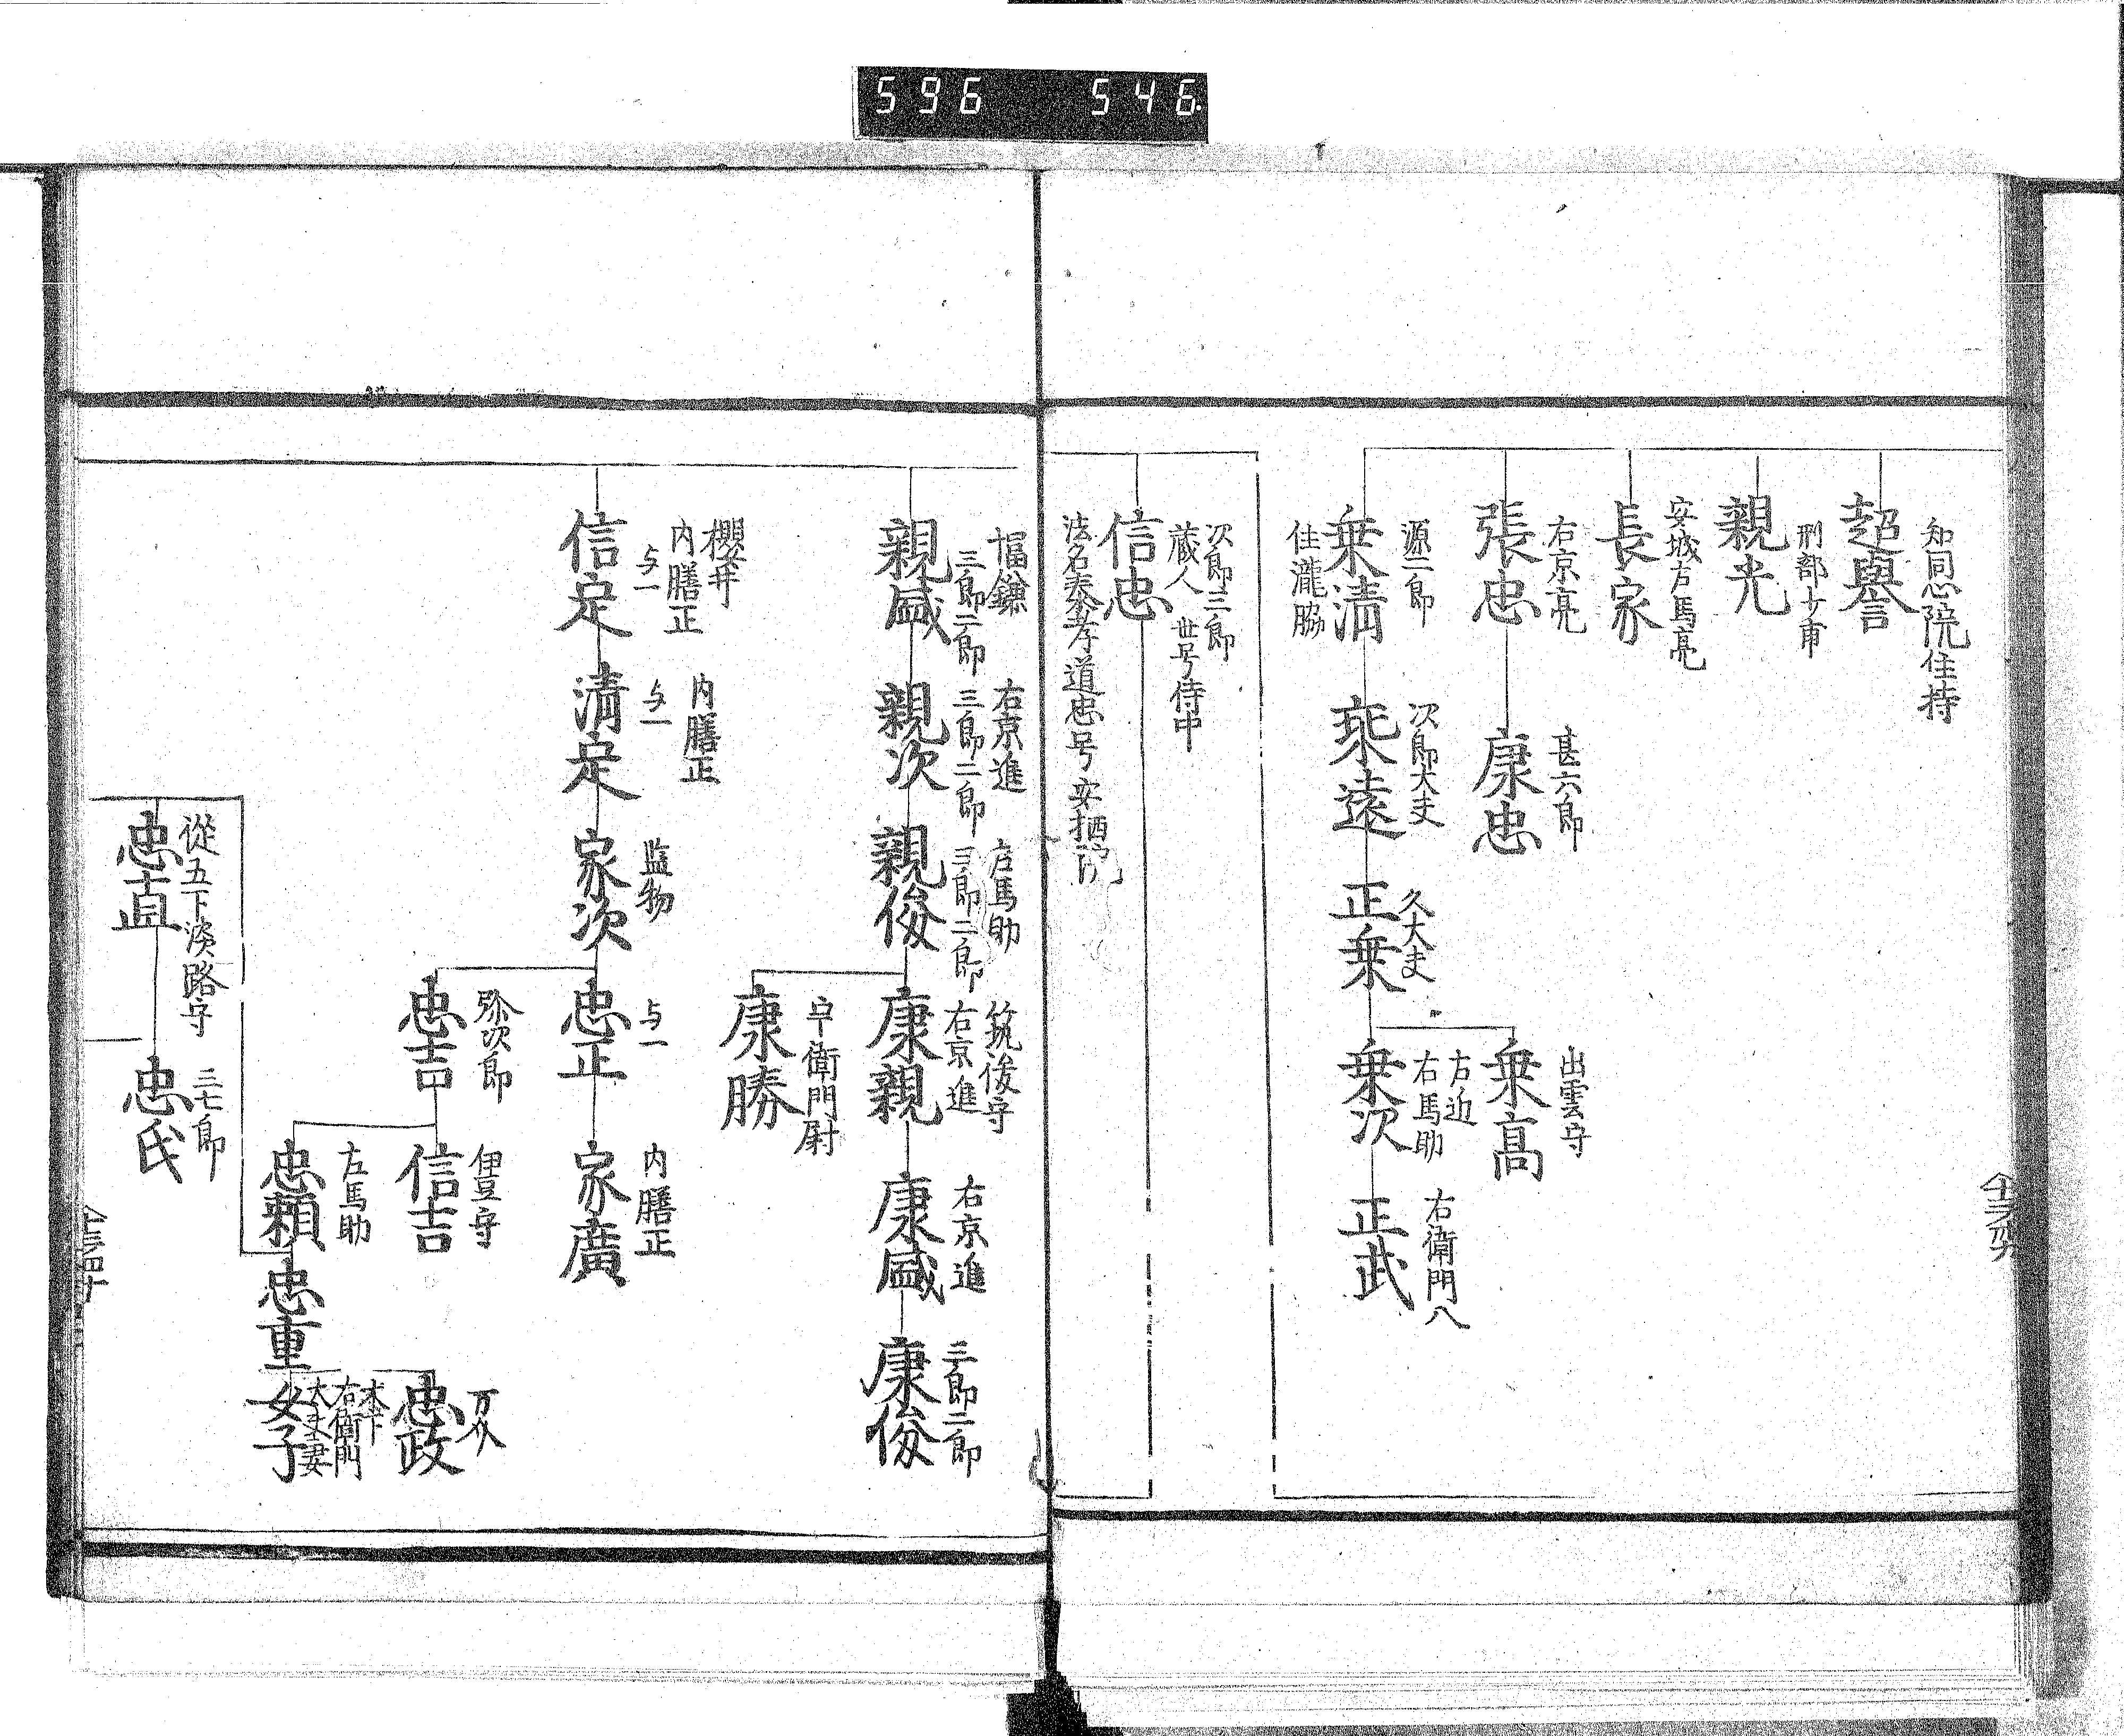 596 546
知恩院住持
超譽
刑部少甫
親光
安城左馬亮
長家
右京亮
張忠
甚六郎
康忠
源二郎
乗清
住瀧脇
次郎大夫
乗遠
久大夫
正乗
出雲守
乗高
右近
右馬助
乗次
右衛門八
正武
次郎三郎
蔵人 世号侍中
信忠
法名泰孝道忠号安栖院
福鎌
三郎二郎
親盛
右京進
三郎二郎
親次
左馬助
三郎二郎
親俊
筑後守
右京進
康親
右京進
康盛
三郎二郎
康俊
衛門尉
康勝
櫻井
内膳正
与一
信定
内膳正
与一
清定
監物
家次
与一
忠正
内膳正
家廣
弥次郎
忠吉
伊豆守
信吉
左馬助
忠頼
忠重
万介
忠政
木下
右衛門
大夫妻
女子
從五下淡路守
忠直
三七郎
忠氏